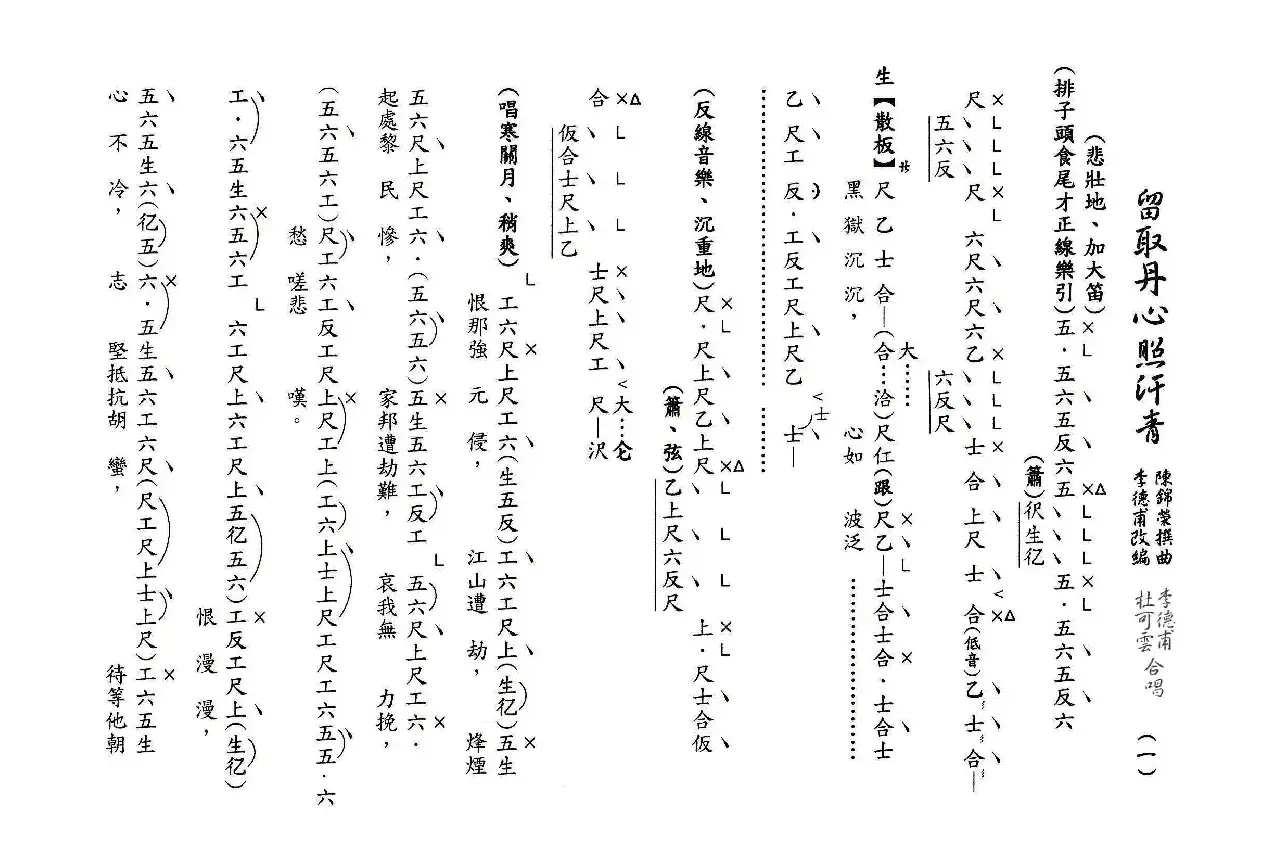 留取丹心照汗青
陳錦榮撰曲
李德甫改編
李德甫
杜可雲 合唱
(一)
(悲壯地、加大笛)
(排子頭食尾才正線樂引)五·五六五反六五 五·五六五反六
(簫)伬生亿
尺 尺 六尺六尺六乙 士合上尺士合(低音)乙士合—
五六反 六反尺
生【散板】尺乙士合—(合…洽)尺仁(跟)尺乙—士合士合·士合士
大……
黑獄沉沉, 心如 波泛
乙尺工反·工反工尺上尺乙 士—
(反線音樂、沉重地)尺·尺上尺乙上尺 上·尺士合仮
(簫、弦)乙上尺六反尺
合 士尺上尺工 尺—沢
大…仑
仮合士尺上乙
(唱寒關月、稍爽) 工六尺上尺工六(生五反)工六工尺上(生亿)五生
恨那強元侵, 江山遭劫, 烽煙
五六尺上尺工六·(五六五六)五生五六工反工 五六尺上尺工六·
起處黎民慘, 家邦遭劫難, 哀我無力挽,
(五六五六工)尺工六工反工尺上尺工上(工六上士上尺工尺工六五五·六
愁嗟悲嘆。
工·六五生六五六工 六工尺上六工尺上五亿五六)工反工尺上(生亿)
恨漫漫,
五六五生六(亿五)六·五生五六工六尺(尺工尺上士上尺)工六五生
心不冷, 志堅抵抗胡蠻, 待等他朝